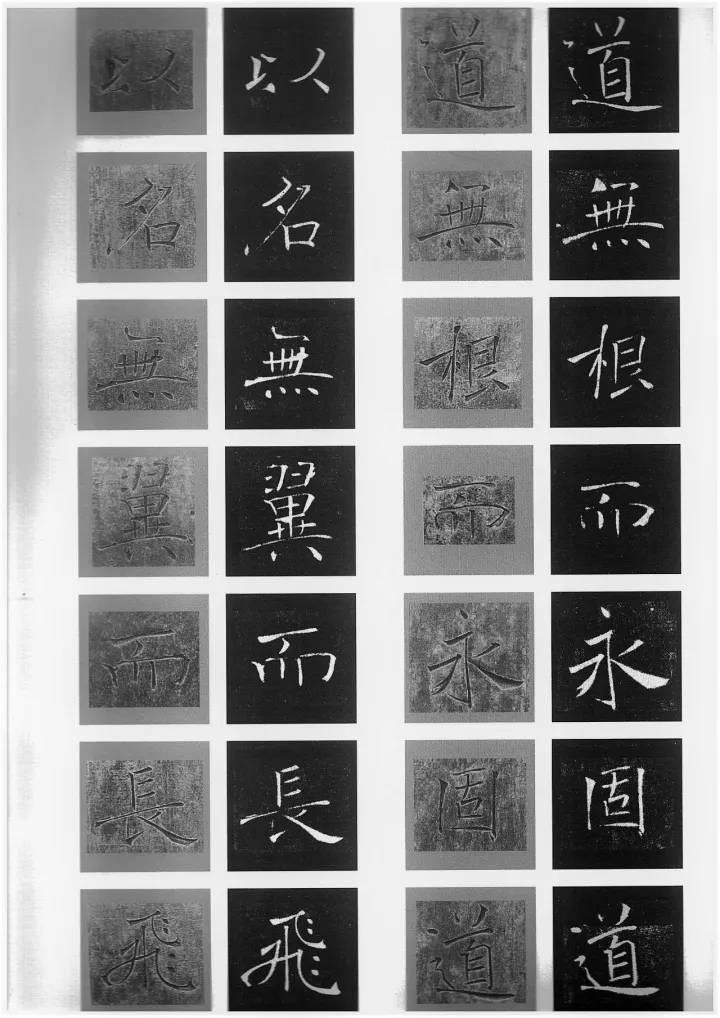 以名無翼而長飛
以名無翼而長飛
道無根而永固道
道無根而永固道